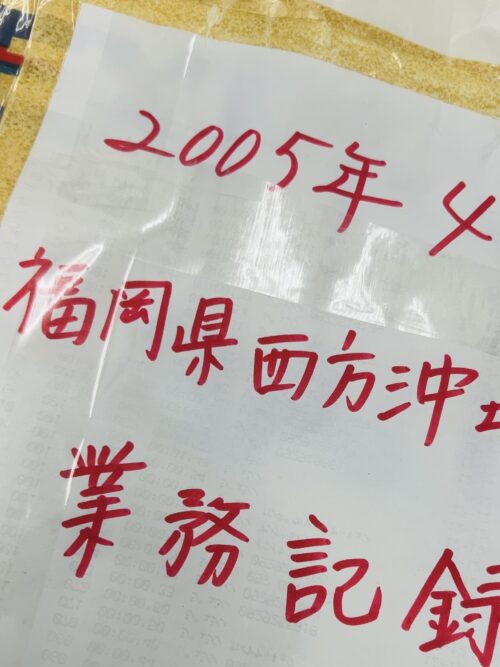 2005年 4
福岡県西方沖
業務記録